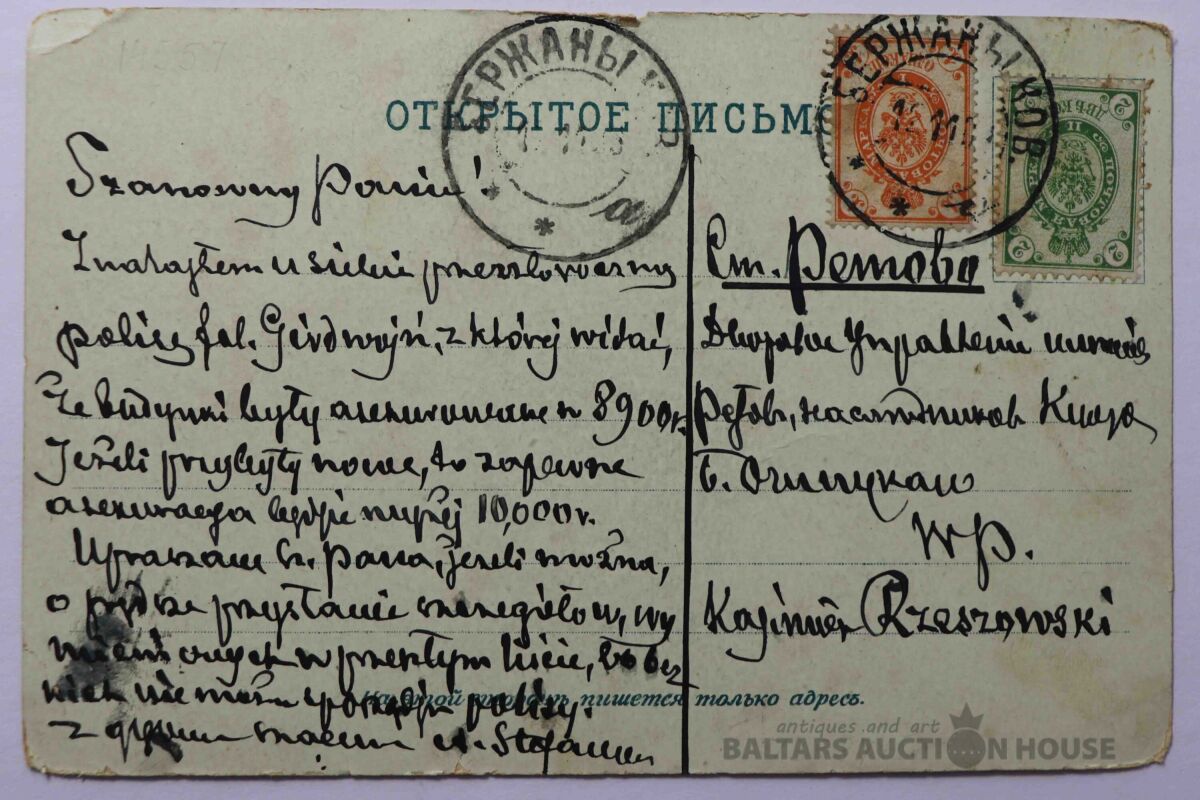 ОТКРЫТОЕ ПИСЬМО
БЕРЖАНЫ КОВ.
БЕРЖАНЫ КОВ.
Szanowny Panie!
Znalazłem u siebie przeszłoroczną
policę fol. Girdwojń, z której widać,
że budynki były asekurowane w 8900r.
Jeżeli przybyły nowe, to zapewne
asekuracya będzie wyżej 10,000r.
Upraszam Sz. Pana, jeżeli można,
o prędsze przysłanie szczegółów, wy
mienionych w przeszłym liście, bo bez
nich nie można sporządzić policy.
Z
A.
Ст. Ретово
Дворовое Управление имения
Ретов, наследников Князя
Б. Огинскаго
WP.
Kazimierz Rzeszowski
На этой сторонѣ пишется только адресъ.
antiques and art
BALTARS AUCTION HOUSE